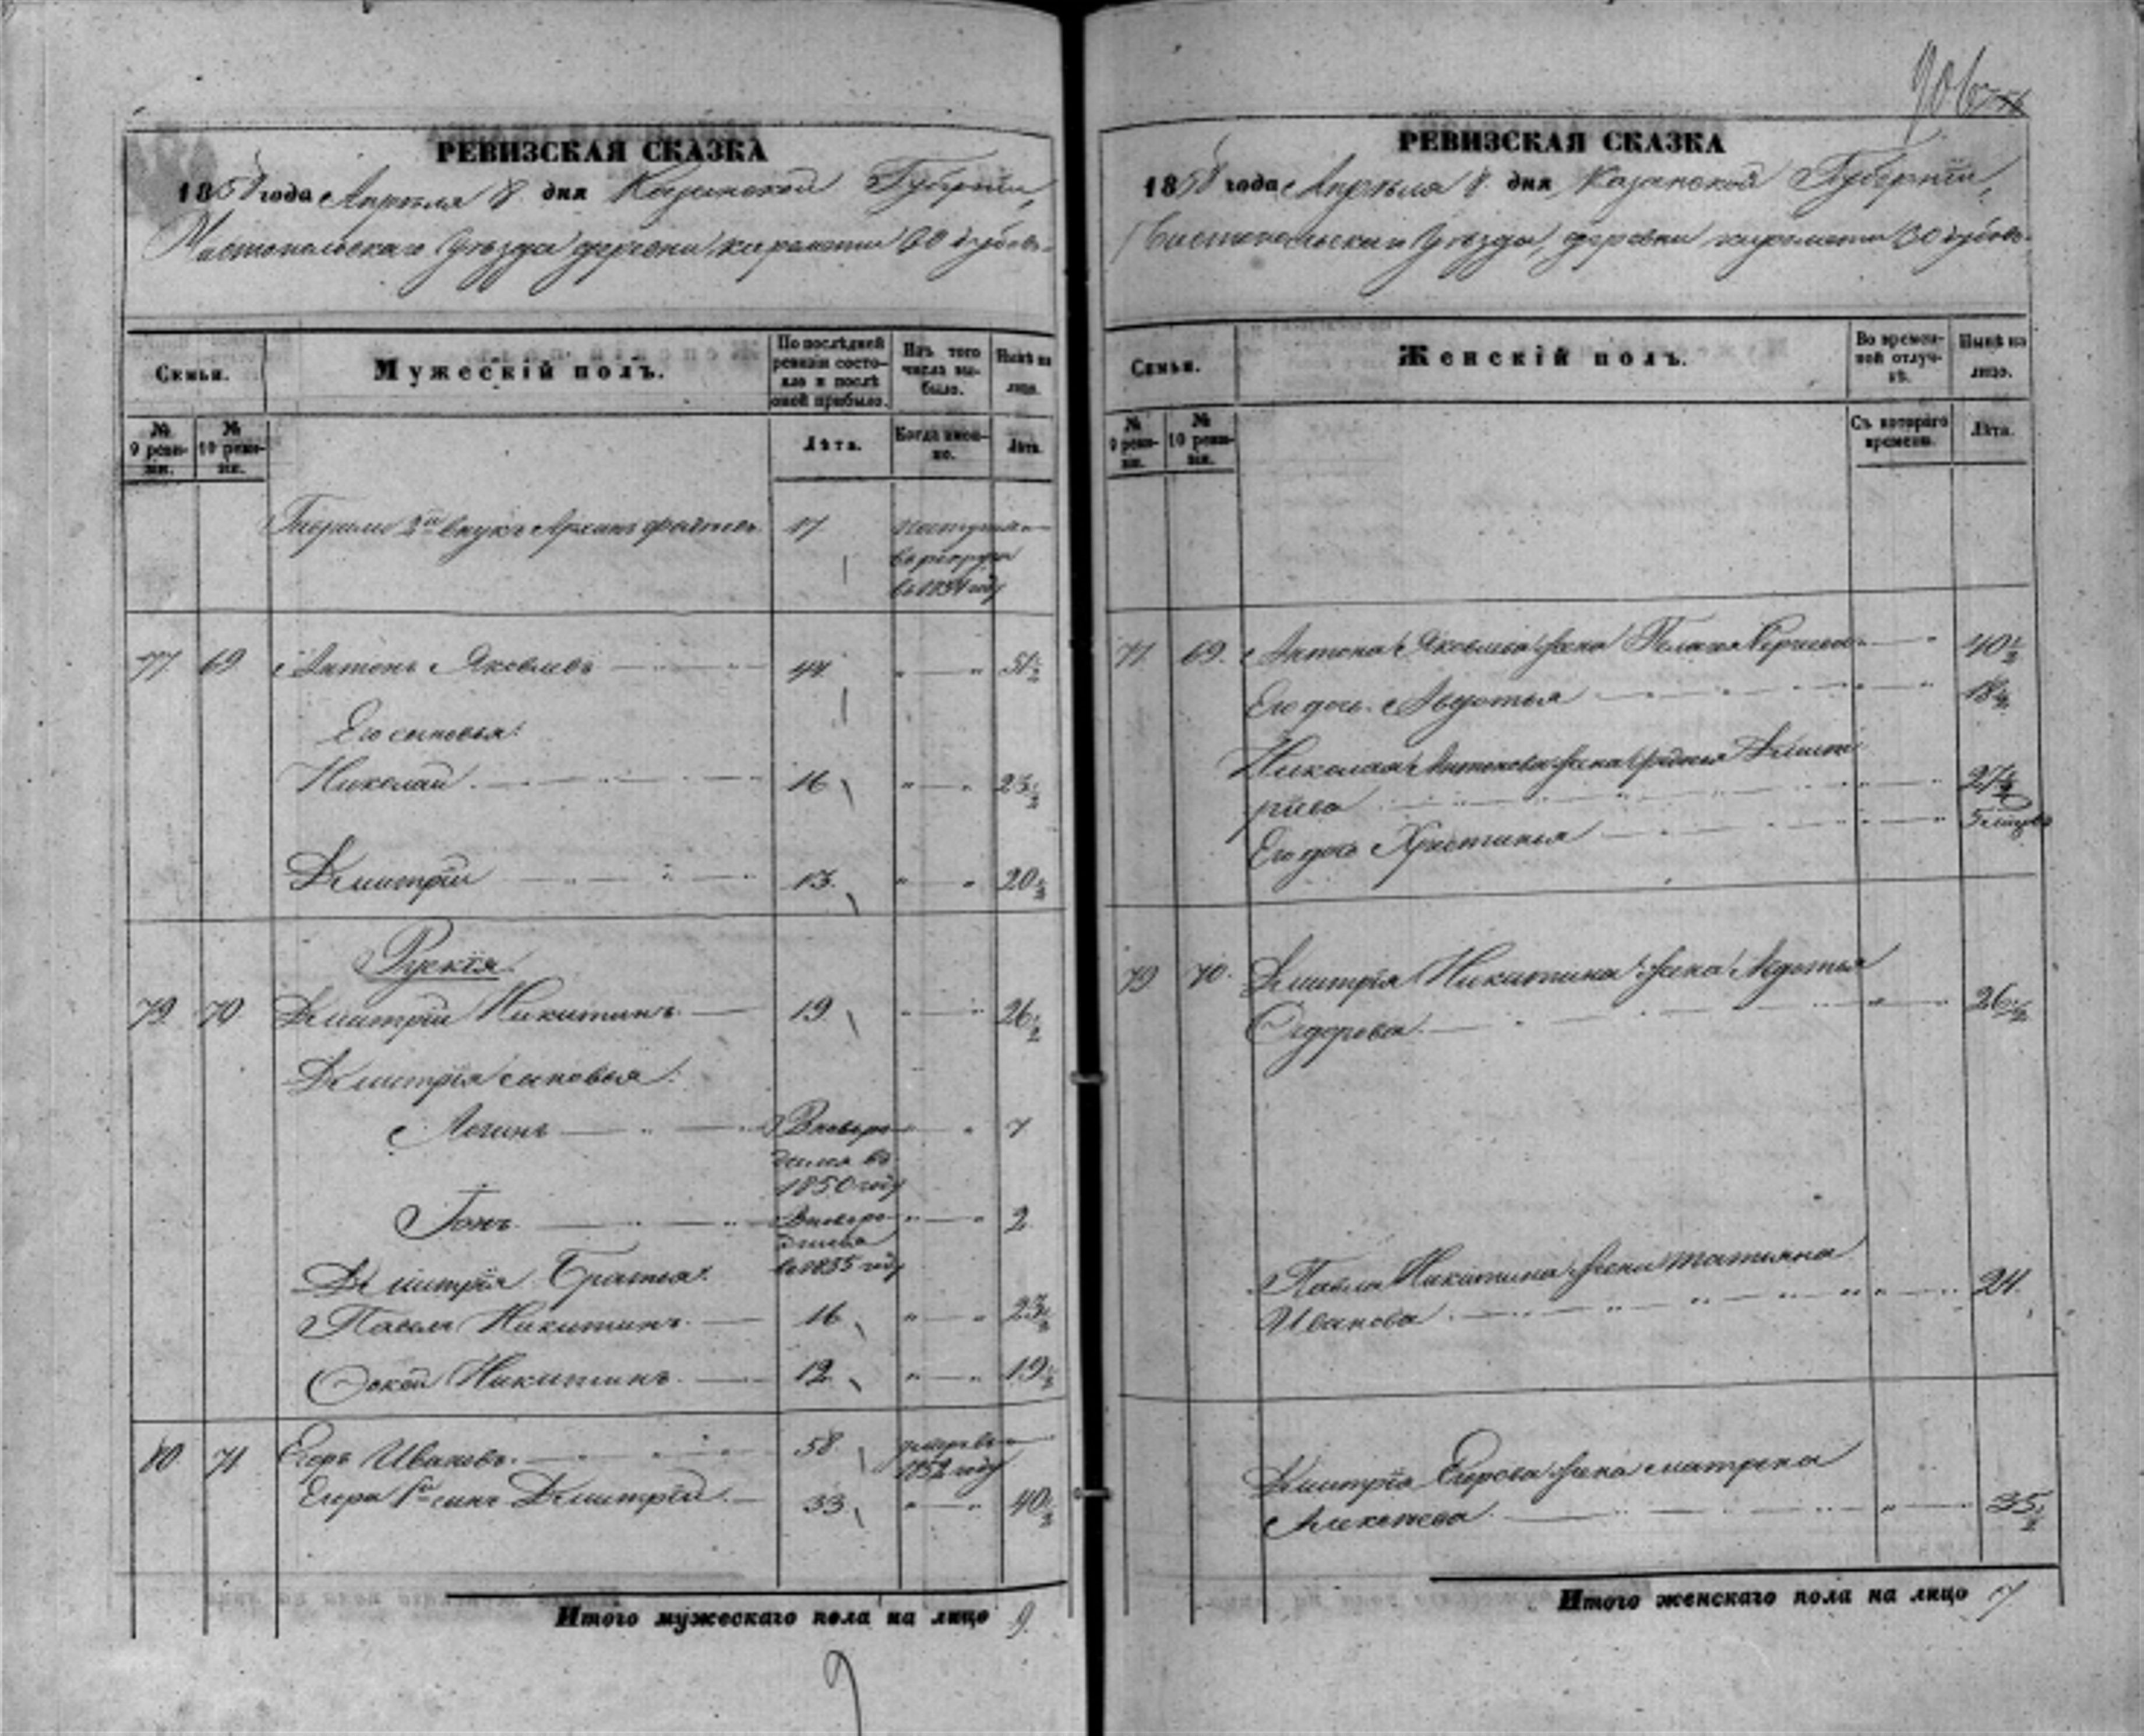 906
РЕВИЗСКАЯ СКАЗКА
1858 года Апреля 8 дня Казанской Губернiи,
Чистопольскаго Уезда деревни киремети
Семьи.
Мужескiй полъ.
По послѣдней ревизiи состояло и послѣ оной прибыло.
Изъ того числа выбыло.
Нынѣ на лицо.
№ 9 ревизiи.
№ 10 ревизiи.
Лѣта.
Когда именно.
Лѣта.
2й внукъ 17
в рекруты
77 69 Антонъ Яковлевъ 44 " " 51½
Его сыновья:
Николай 16 " " 23½
Дмитрiй 13 " " 20½
Рускiя
79 70 Дмитрiй Никитинъ 19 " " 26½
Дмитрiя сыновья:
Логинъ Новорожденъ въ 1850 году " 7
Iонъ Новорожденъ въ 1855 году " " 2
Дмитрiя Братья:
Павелъ Никитинъ 16 " " 23½
Никитинъ 12 " " 19½
80 71 Егоръ Ивановъ 58 умеръ въ 1852 году
Егора 1й сынъ Дмитрiй 33 " " 40½
Итого мужескаго пола на лицо 9
9
РЕВИЗСКАЯ СКАЗКА
1858 года Апреля 8 дня Казанской Губернiи,
Чистопольскаго Уезда, деревни киремети
Семьи.
Женскiй полъ.
Во временной отлучкѣ.
Нынѣ на лицо.
№ 9 ревизiи.
№ 10 ревизiи.
Съ котораго времени.
Лѣта.
77 69. Антона Яковлева жена 40½
Его дочь Авдотья 18½
Николая Антонова жена Дмит
рiева 27½
Его дочь Христинья 5 месяцев
79 70. Дмитрiя Никитина жена Авдотья
Сидорова 26½
Павла Никитина жена татьяна
Иванова 24.
Дмитрiя Егорова жена матрена
Алексеева 35½
Итого женскаго пола на лицо 7